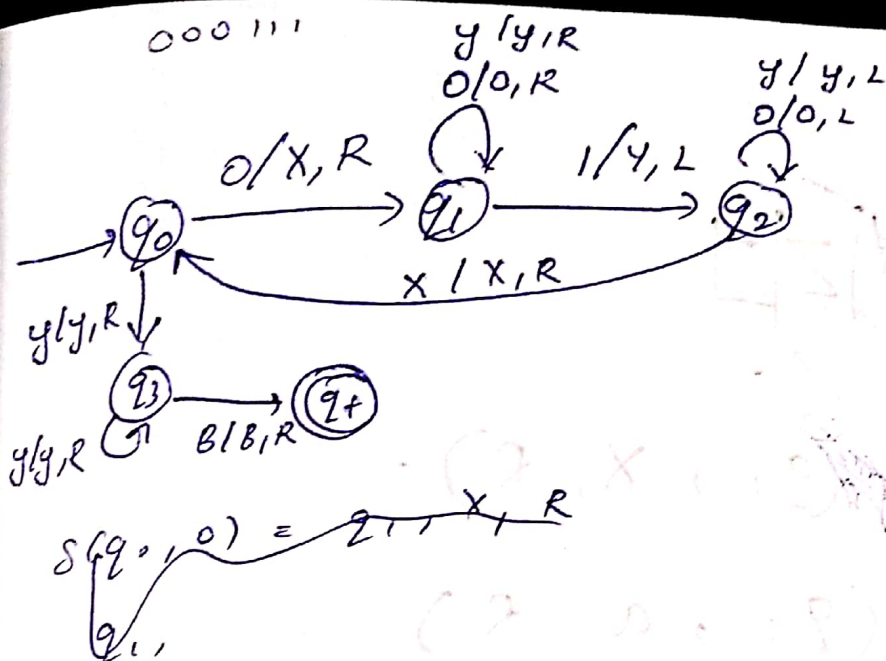 000111
y/y,R
0/0,R
y/y,L
0/0,L
0/X,R
1/Y,L
q0
q1
q2
X/X,R
y/y,R
q3
qf
y/y,R
B/B,R
δ(q0,0) = q1, X, R
q1,